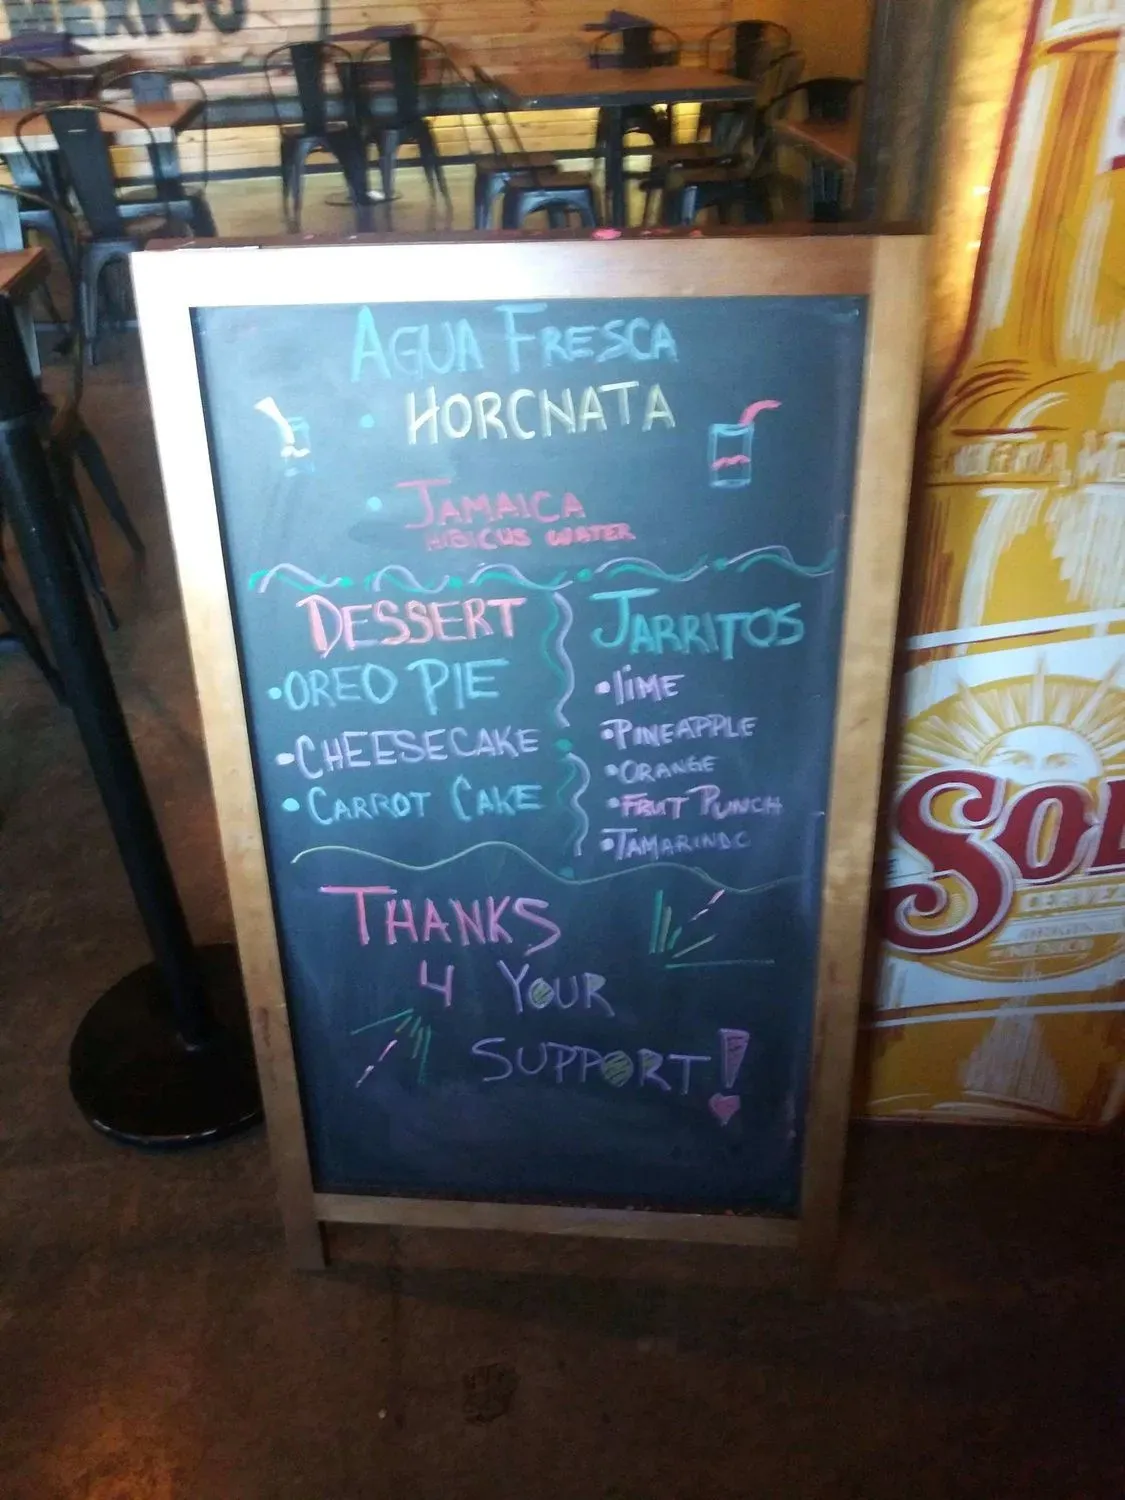 MEXICO
AGUA FRESCA
• HORCNATA
• JAMAICA
HIBICUS WATER
DESSERT
• OREO PIE
• CHEESECAKE
• CARROT CAKE
JARRITOS
• lIME
• PINEAPPLE
• ORANGE
• FRUIT PUNCH
• TAMARINDO
THANKS
4 YOUR
SUPPORT!
SOL
CERVEZA